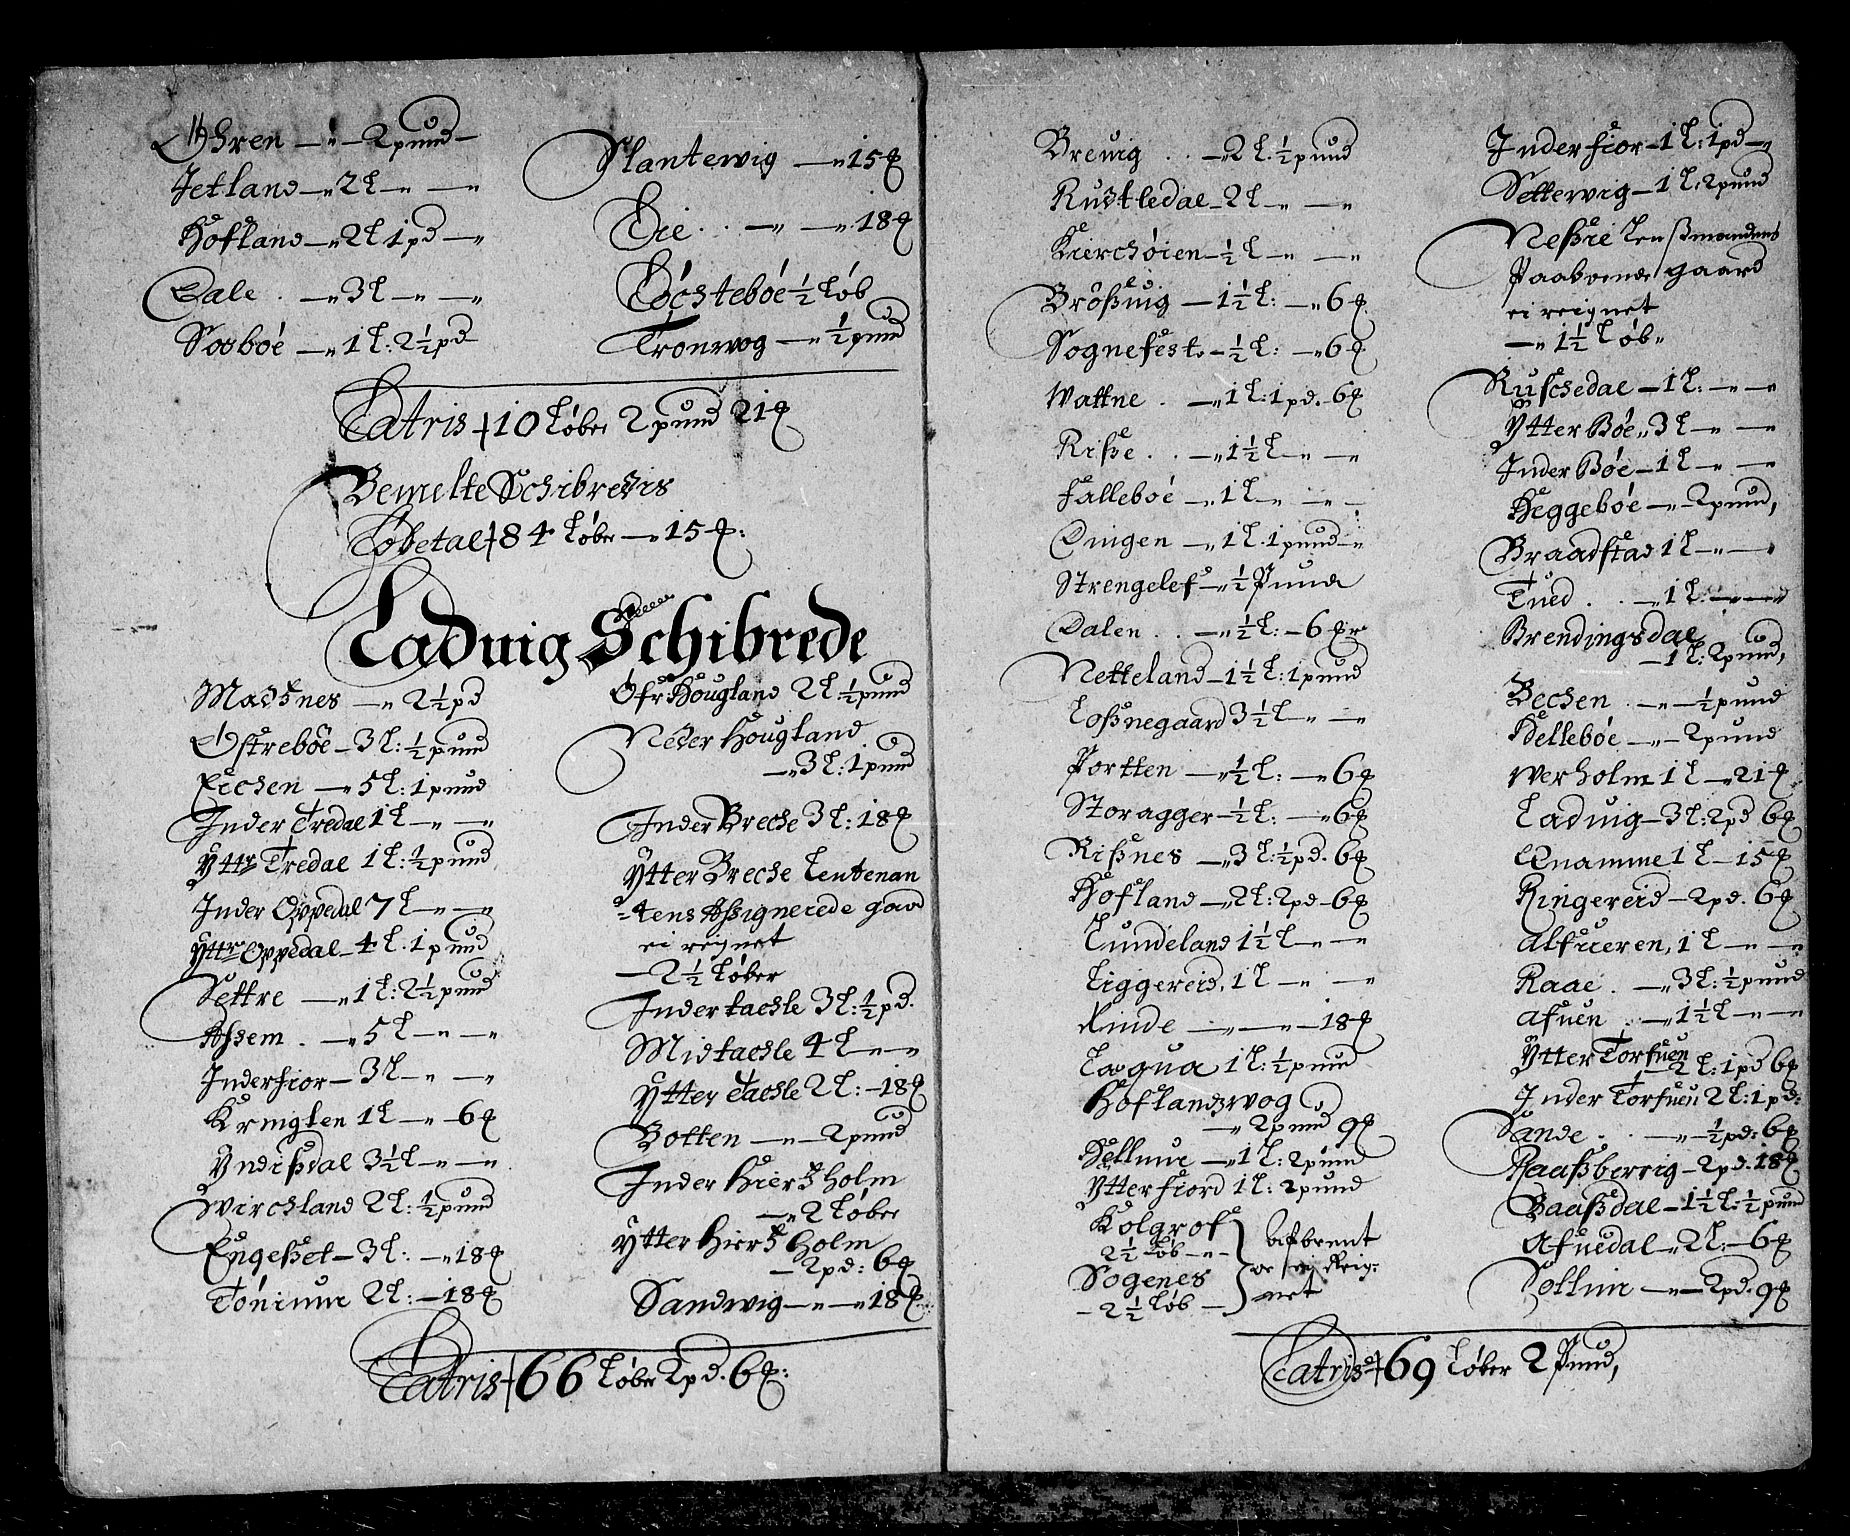 Øhren — 2 pund —
Jetland — 2 l — —
Hofland — 2 l 1 pd —
Dale . — 3 l — —
Sosboe — 1 l: 2½ pd
Slantewig — 15 ꝶ
Eie . . — — 18 ꝶ
Löcsteböe ½ löb
Tronwog — ½ pund
Latris + 10 Löber 2 pund 21 ꝶ
Bemelte Schibredis
Löbetal + 84 Löber — 15 ꝶ:
Ladvig Schibrede
Madsnes — 2½ pd
Østreböe — 3 l: ½ pund
Eichen — 5 l: 1 pund
Inder Tredal 1 l — —
Ytter Tredal 1 l: ½ pund
Inder Oppedal 7 l — —
Ytter Oppedal — 4 l. 1 pund
Settre — 1 l: 2½ pund
Assem . — 5 l — —
Inderfior — 3 l — —
Kringlen 1 l — 6 ꝶ
Yndisdal 3½ l — —
Wirchland 2 l: ½ pund
Engesset — 3 l: — 18 ꝶ
Tönium 2 l: — 18 ꝶ
Ofr Hougland 2 l: ½ pund
Neder Hougland
— 3 l: 1 pund
Inder Breche 3 l: 18 ꝶ
Ytter Breche Leutenan
=tens Assignerede gard
ei reignet
— 2½ Löber
Inder tacsle 3 l: ½ pd.
Midtacsle 4 l — —
Ytter Tacsle 2 l: — 18 ꝶ
Botten — — 2 pund
Inder Hiersholm
— 2 Löber
Ytter Hiersholm
— 2 pd: 6 ꝶ
Sandwig — — 18 ꝶ
Latris + 66 Löber 2 pd. 6 ꝶ:
Brevig . . — 2 l. ½ pund
Rustledal — 2 l — —
Kierchöien — ½ l — —
Brössvig — 1½ l: — 6 ꝶ
Sognefest — ½ l: — 6 ꝶ
Wattne . — 1 l: 1 pd. 6 ꝶ
Risse . . — 1½ l — —
Falleboe — 1 l — —
Dingen — 1 l. 1 pund —
Strengelef — ½ Pund
Dalen . . — ½ l: — 6 ꝶr
Netteland — 1½ l: 1 pund
Lossnegaard 3½ l — —
Portten — ½ l: — 6 ꝶ
Storagger — ½ l: — 6 ꝶ
Rissnes — 3 l: ½ pd. 6 ꝶ
Hofland — 2 l: 2 pd — 6 ꝶ
Lundeland 1½ l — —
Liggereid, 1 l — —
Rinde — — 18 ꝶ
Laqua 1 l: ½ pund
Hoflandzwog
— 2 pund 9 ꝶ
Hellm — 1 l: 2 pund
Ytterfiord 1 l: 2 pund
Kolgrof
2½ löb — —
Sogenes
— 2½ löb —
afbrent
oc ey Reig:
net
Inderfior — 1 l: 1 pd —
Settewig — 1 l: 2 pund
Nessie Lenssmandens
Paaboende gaard
ei reignet
— 1½ Löb
Ruschedal — 1 l: — —
Ytter Böe 3 l — —
Inder Böe — 1 l — —
Heggeböe — 2 pund,
Braadstad 1 l — —
Tued . . — 1 l. — —
Brendingsdal
— 1 l: 2 pund,
Bechen . — — ½ pund
Helleböe — — 2 pund
Werholm 1 l — 21 ꝶ
Ladvig — 3 l: 2 pd 6 ꝶ
Qnamme 1 l — 15 ꝶ
Ringereid — 2 pd. 6 ꝶ
Alfueren, 1 l — —
Raae . — 3 l: ½ pund
Afuen . — 1½ l — —
Ytter Torfuen
— 2 l: 1 pd 6 ꝶ
Inder Torfuen 2 l: 1 pd:
Sande . . — — ½ pd: 6 ꝶ
Raassberrig — 2 pd. 18 ꝶ
Baassdal — 1½ l: ½ pund
Afuedal — 2 l: — 6 ꝶ
Sollim — — 2 pd. 9 ꝶ
Latris + 69 Löber 2 Pund,